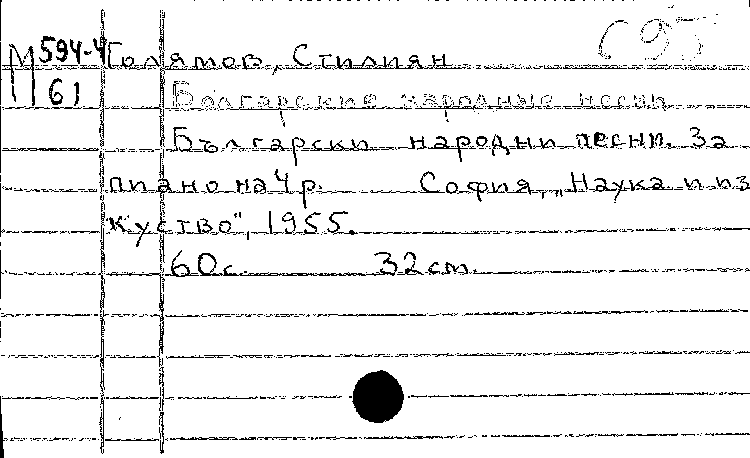 М 594-4 Голямов, Стилиян С 95
61 Болгарские народные песни
Български народни песни. За
пиано на 4 р. София, „Наука и из
куство", 1955.
60 с. 32 см.